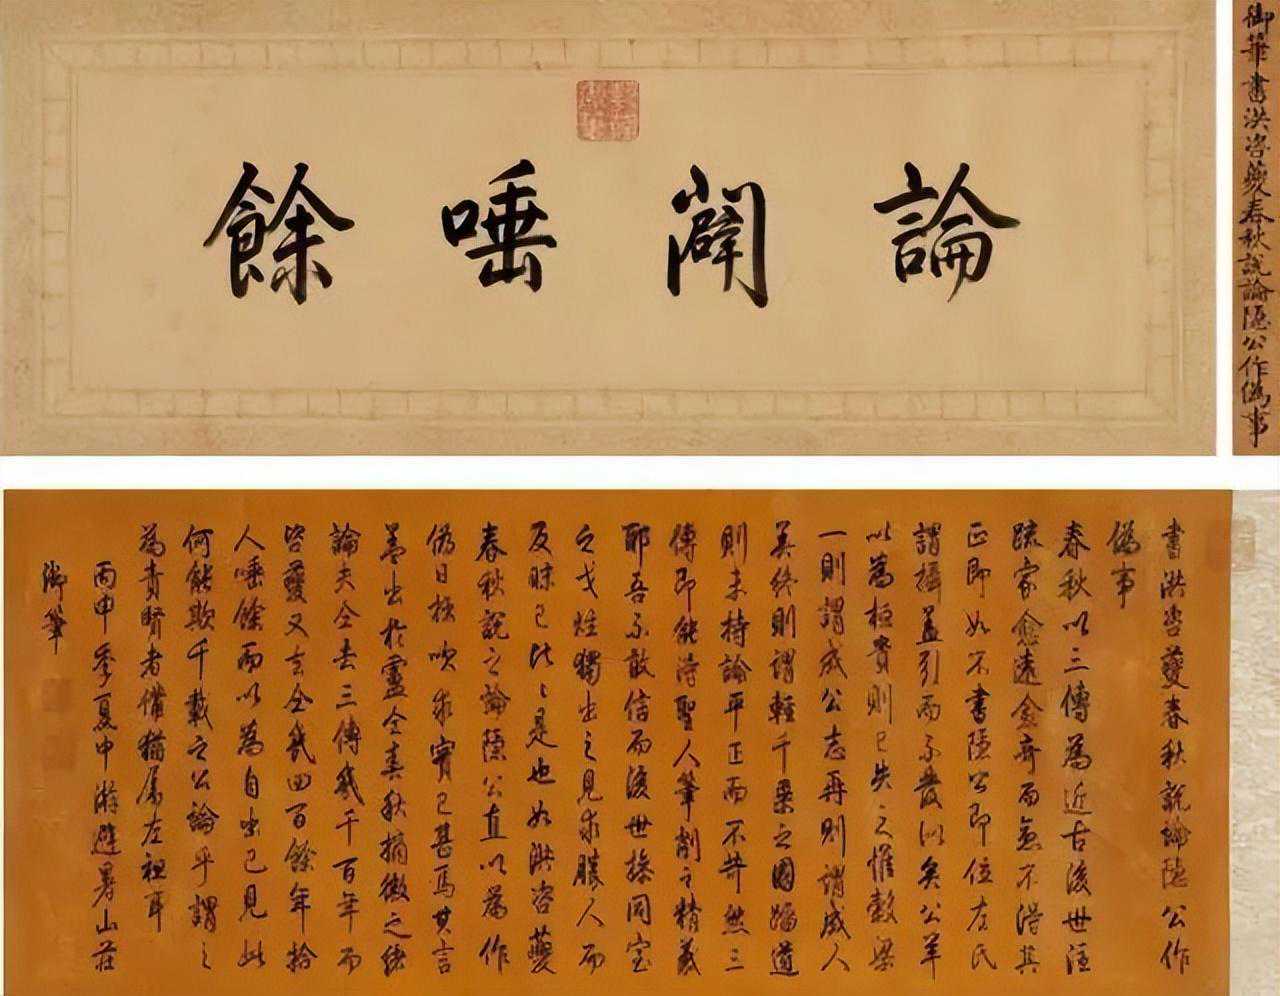 御筆書洪咨夔春秋說論隱公作偽事
論闢唾餘
書洪咨夔春秋說論隱公作
偽事
春秋以三傳為近古後世注
疏家愈遠愈奇而無不得其
正即如不書隱公即位左氏
謂攝盖引而不發似矣公羊
以為桓貴則已失之惟穀梁
一則謂成公志再則謂成人
美終則謂輕千乘之國蹈道
則未持論平正而不苛然三
傳即能得聖人筆削之精義
耶吾不敢信而後世操同室
之戈炫獨出之見求勝人而
反昧己比比是也如洪咨夔
春秋說之論隱公直以為作
偽日極吹求實已甚焉其言
盖出於盧仝春秋摘微之緒
論夫仝去三傳幾千百年而
咨夔又去仝幾四百餘年拾
人唾餘而以為自出己見此
何能欺千載之公論乎謂之
為責賢者備猶属左袒耳
丙申季夏中澣避暑山莊
御筆